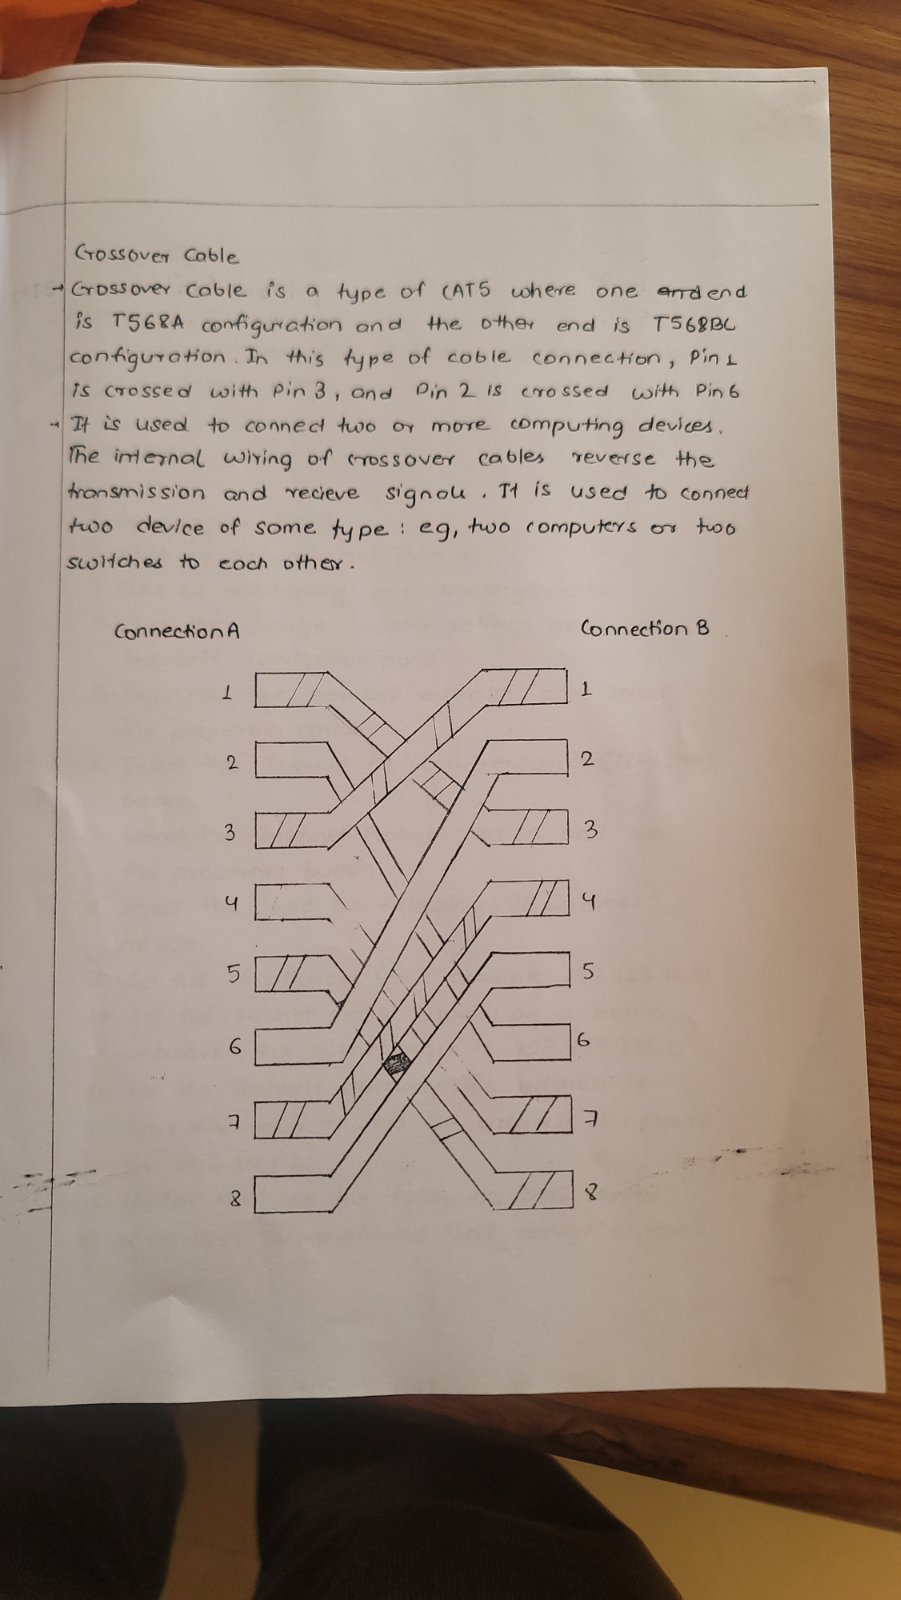 Crossover Cable
→ Crossover Cable is a type of CAT5 where one end
is T568A configuration and the other end is T568BC
configuration. In this type of cable connection, Pin 1
is crossed with Pin 3, and Pin 2 is crossed with Pin 6
→ It is used to connect two or more computing devices.
The internal wiring of crossover cables reverse the
transmission and recieve signals. It is used to connect
two device of same type: eg, two computers or two
switches to each other.
Connection A Connection B
1 1
2 2
3 3
4 4
5 5
6 6
7 7
8 8